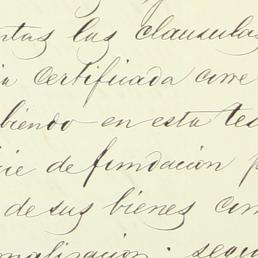 ntas las clausulas
ia certificada corre
biendo en esta tes
cie de fundacion p
de sus bienes con
nalizacion . segu